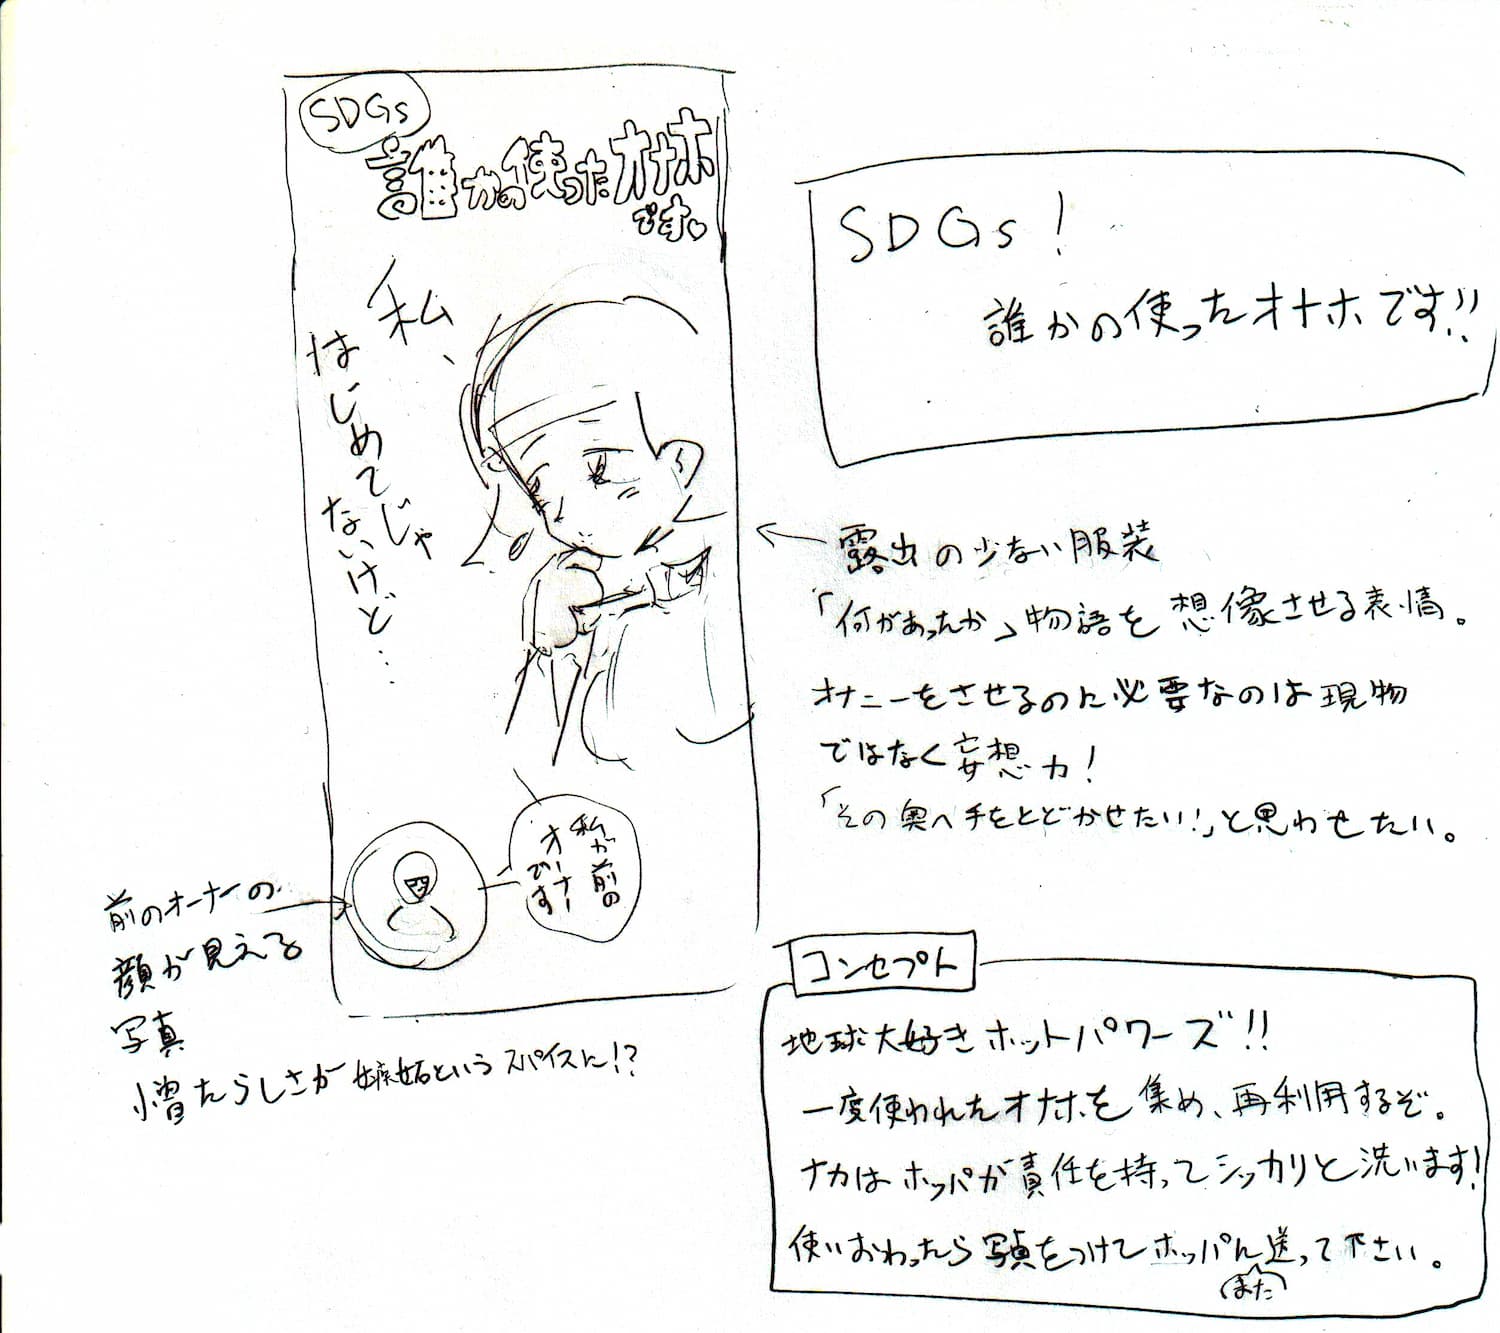 SDGs
誰かの使ったオナホ
です♡
私、
はじめてじゃ
ないけど…
私が前の
オーナー
です
前のオーナーの
顔が見える
写真
小憎たらしさが嫉妬というスパイスに!?
SDGs!
誰かの使ったオナホです!!
露出の少ない服装
「何があったか」物語を想像させる表情。
オナニーをさせるのに必要なのは現物
ではなく妄想力!
「その奥へ手をとどかせたい!」と思わせたい。
コンセプト
地球大好きホットパワーズ!!
一度使われたオナホを集め、再利用するぞ。
ナカはホッパが責任を持ってシッカリと洗います!
使いおわったら写真をつけてホッパに送って下さい。
また